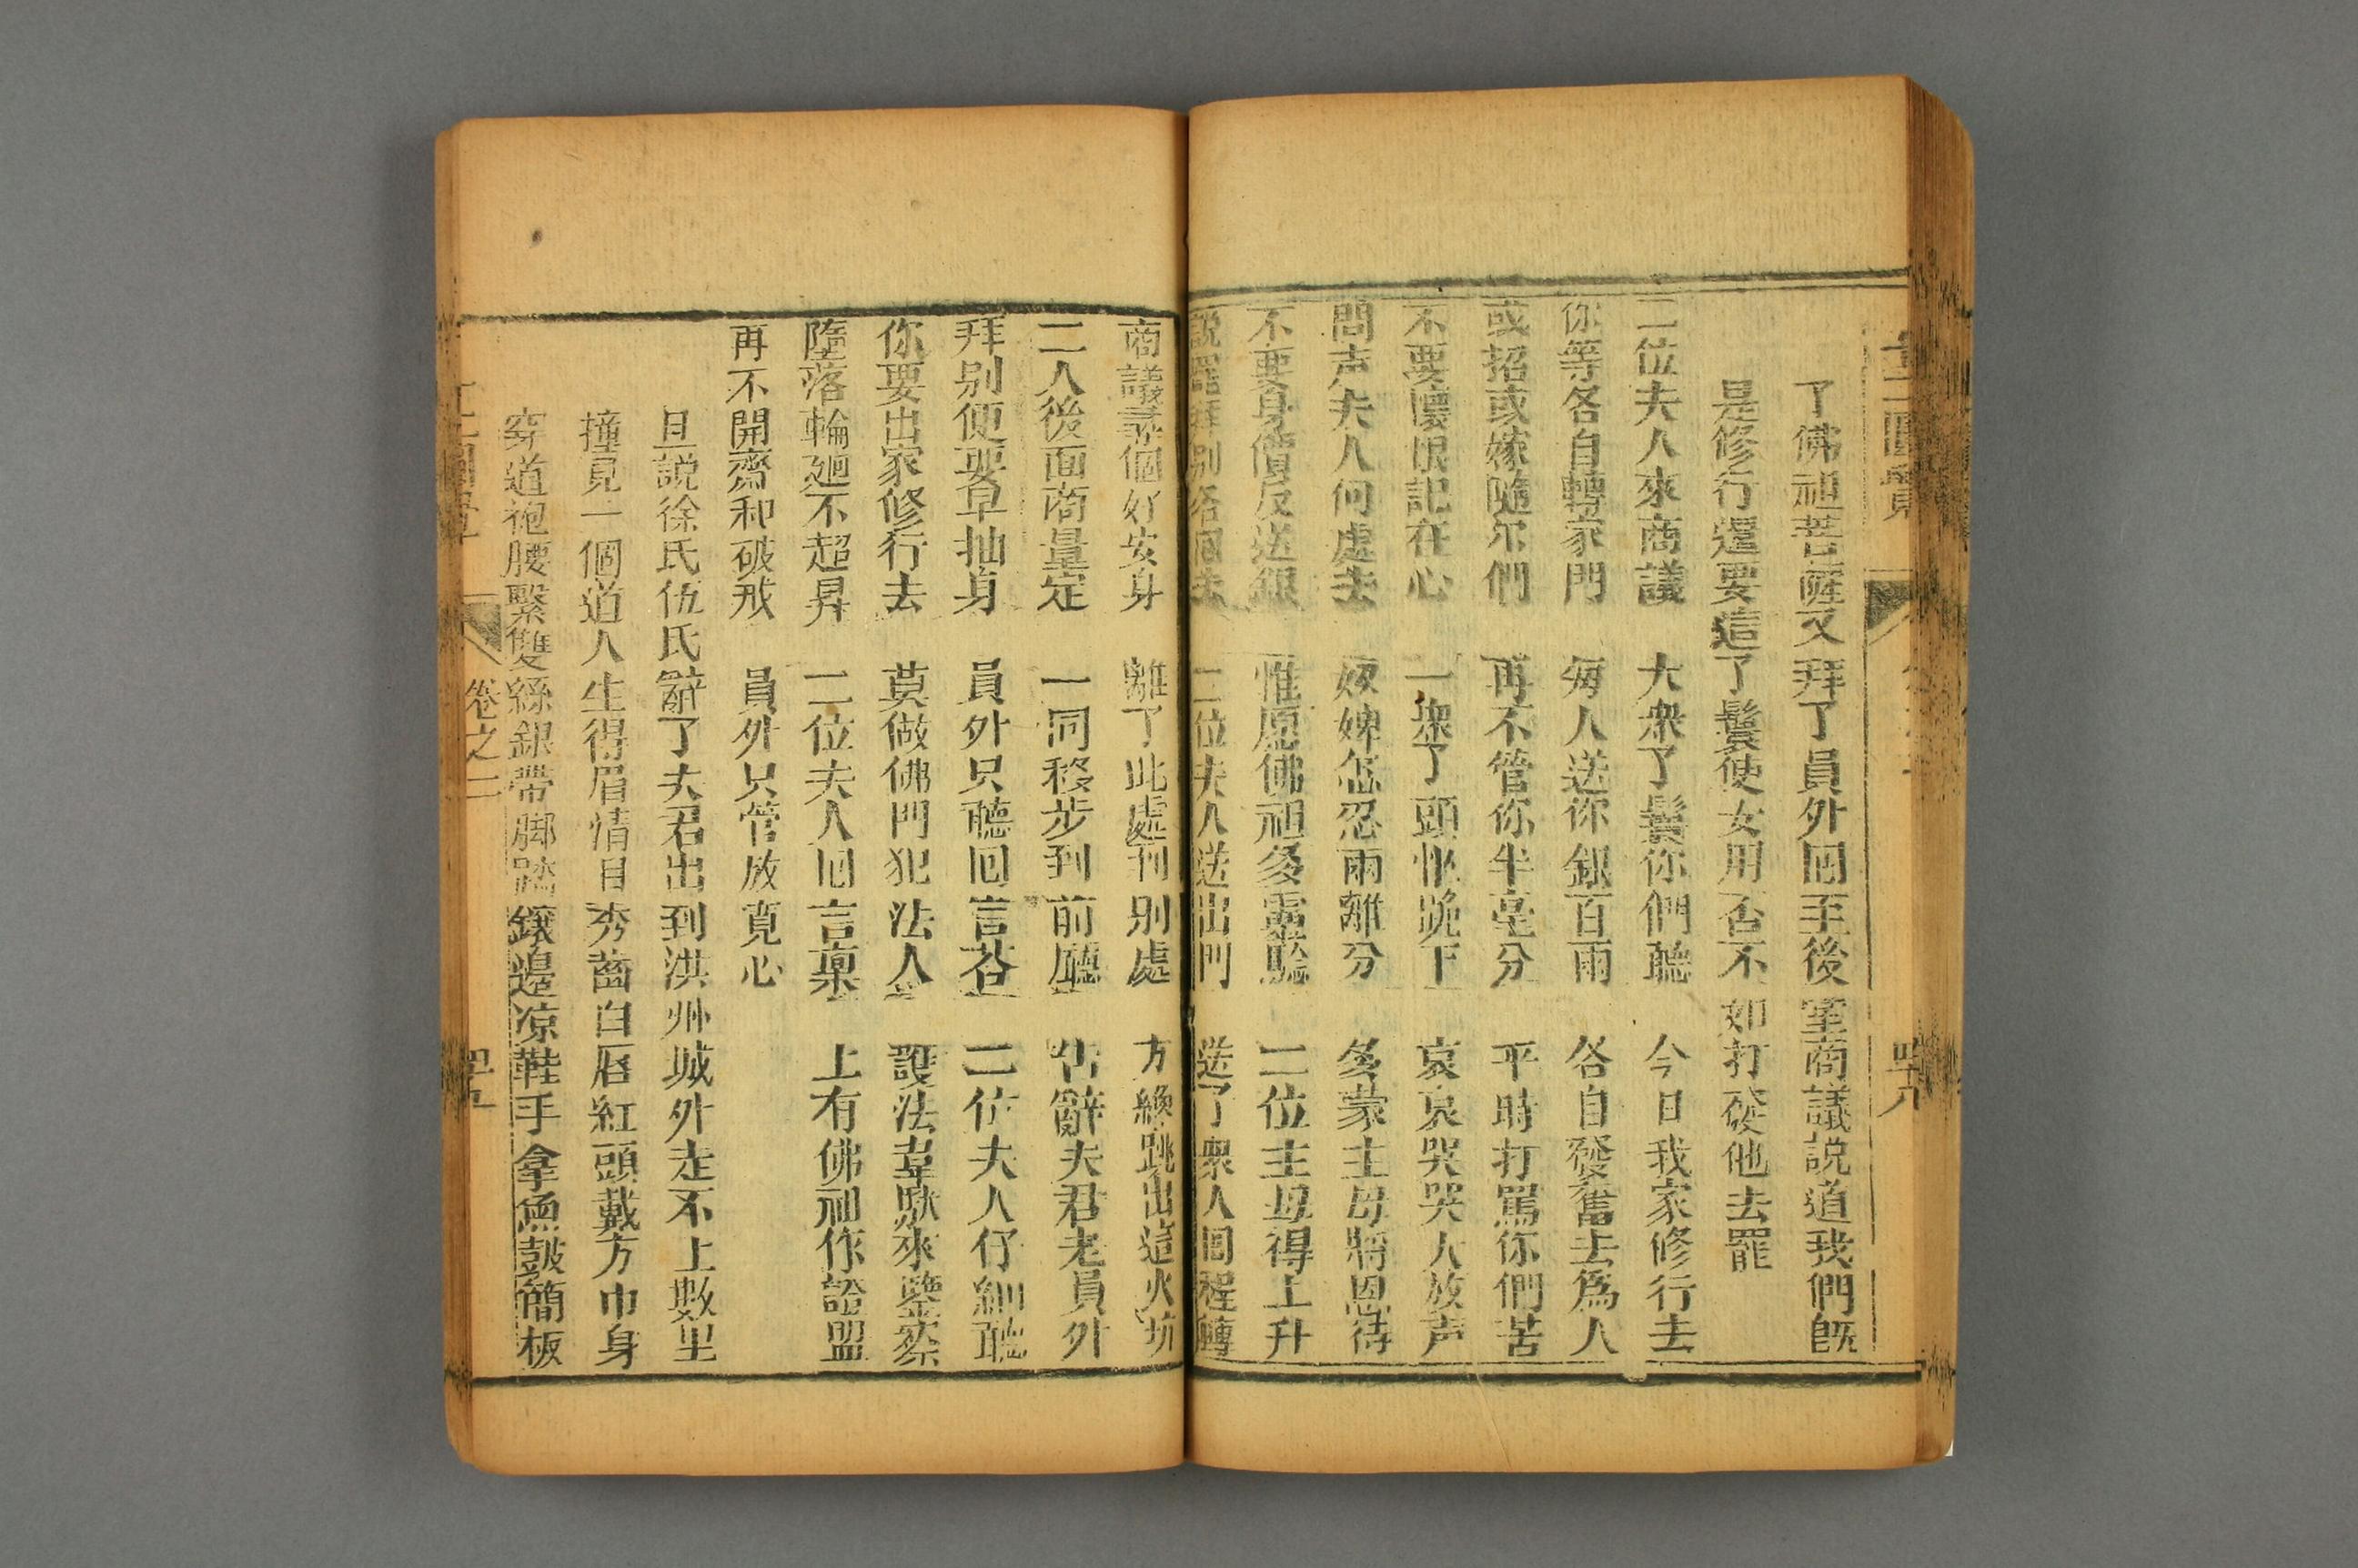 了佛祖菩薩又拜了員外囘至後室商議說道我們旣
是修行還要這了鬟使女用否不如打發他去罷
二位夫人來商議　大衆了鬟你們聽　今日我家修行去
你等各自轉家門　每人送你銀百兩　各自發奮去爲人
或招或嫁隨尔們　再不管你半毫分　平時打罵你們苦
不要懷恨記在心　一衆了頭忙跪下　哀哀哭哭大放声
問声夫人何處去　奴婢怎忍兩離分　多蒙主母將恩待
不要身價反送銀　惟愿佛祖多靈驗　二位主母得上升
說罷拜别各囘去　二位夫人送出門　送了衆人囘程轉
商議尋個好安身　離了此處到别處　方纔跳出這火坑
二人後面商量定　一同移步到前廳　告辭夫君老員外
拜别便要早抽身　員外只聽囘言荅　二位夫人仔細聽
你要出家修行去　莫做佛門犯法人　護法韋馱來鑒察
墮落輪廻不超昇　二位夫人囘言禀　上有佛祖作證盟
再不開齋和破戒　員外只管放寛心
且説徐氏伍氏辭了夫君出到洪州城外走不上數里
撞見一個道人生得眉情目秀齒白唇紅頭戴方巾身
穿道袍腰繫雙絲銀帶脚踏鑲邊凉鞋手拿魚鼓簡板
卷之二